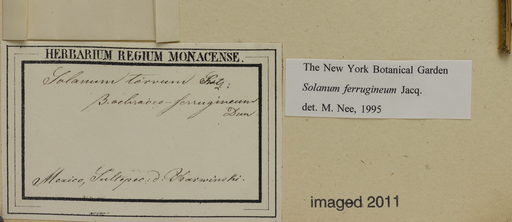 HERBARIUM REGIUM MONACENSE.
Solanum torvum
β. ochraceo-ferrugineum
Dun
Mexico, Sultepec: d. Karwinski.
The New York Botanical Garden
Solanum ferrugineum Jacq.
det. M. Nee, 1995
imaged 2011